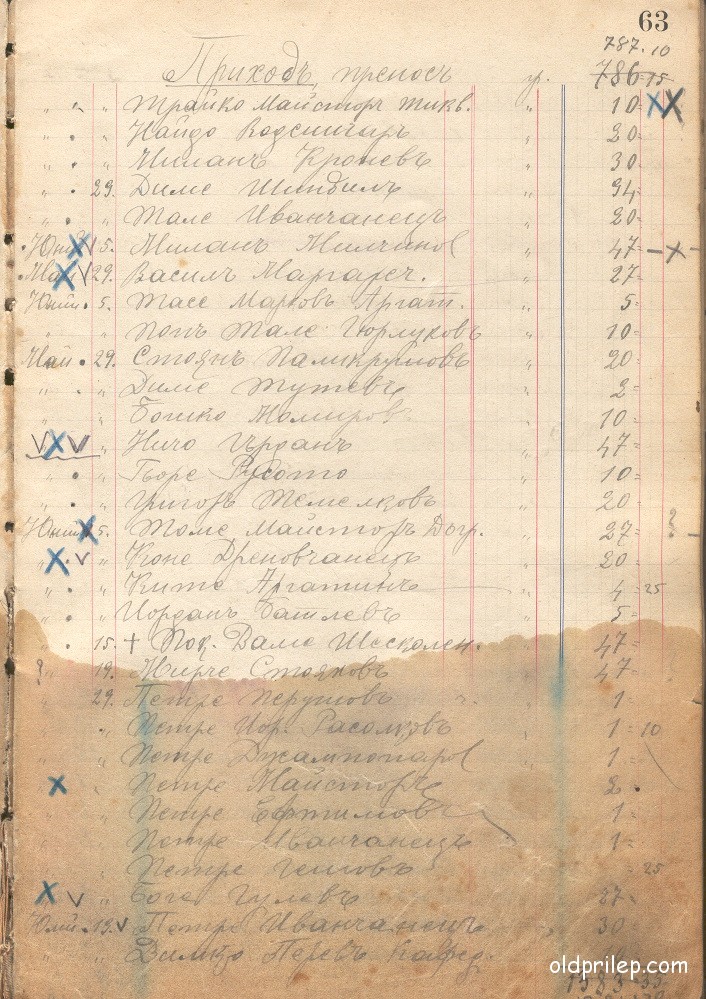 63
787.10
Приходъ, преносъ гр. 786.15
Трайко Майсторъ тикв. 10
Найдо 20
Миланъ Кроневъ 30
29. Диме 94
Тале Иванчанецъ 20
Юний 5. Миланъ 47
Май 29. Василъ Маргареч. 27
Юний 5. Тасе Марковъ Аргат. 5
Попъ Тале Гюрлуковъ 10
Май 29. Стоянъ Паликрушовъ 20
Диме Тутевъ 2
Бошко Момировъ 10
Ничо 47
Гьоре Русото 10
Григоръ Темелковъ 20
Юний 5. Томе Майсторъ 27
Коне Дреновчанецъ 20
Ките Аргатинъ 4 25
Иорданъ Башлевъ 5
15. + Пок. Даме 47
19. Мирче Стояковъ 47
29. Петре Перушовъ 1
Петре Иор. Расолковъ 1 10
Петре 1
Петре Майсторъ 2
Петре Ефтимовъ 1
Петре Иванчанецъ 1
Петре Гешовъ 25
Боге Гулевъ 27
Юлий 19. Петре Иванчанецъ 30
Димко
oldprilep.com